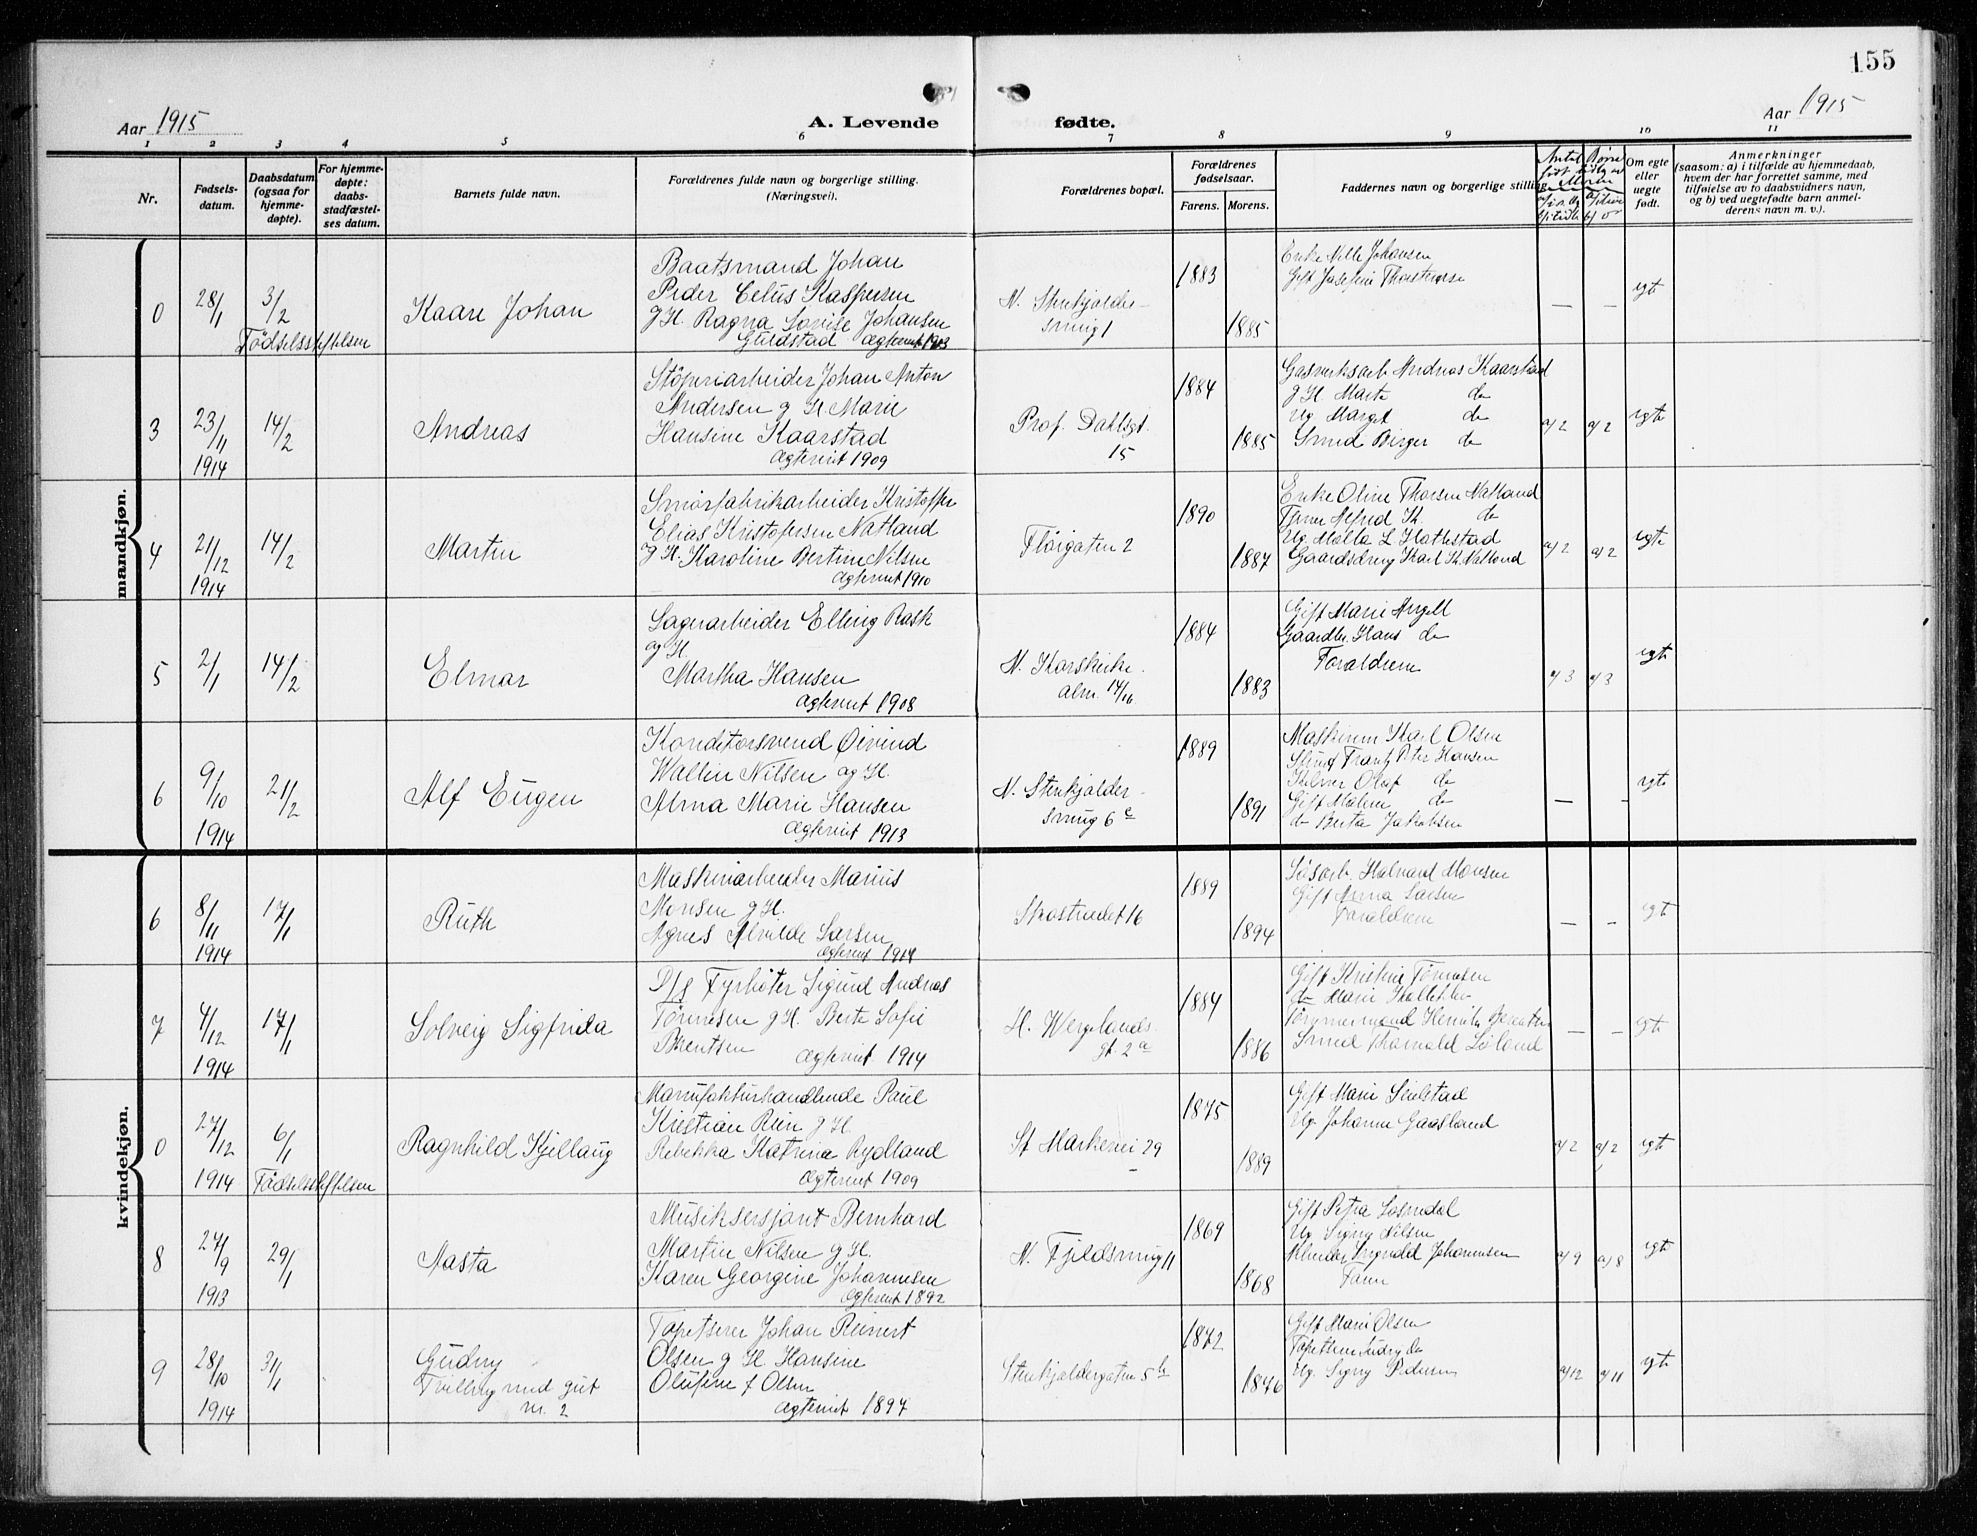 155
Aar 1915
A. Levende
fødte.
Aar 1915
1 2 3 4 5 6 7 8 9 10 11
Nr.
Fødsels-
datum.
Daabsdatum
(ogsaa for
hjemme-
døpte).
For hjemme-
døpte:
daabs-
stadfæstel-
ses datum.
Barnets fulde navn.
Forældrenes fulde navn og borgerlige stilling.
(Næringsvei).
Forældrenes bopæl.
Forældrenes
fødselsaar.
Farens.
Morens.
Faddernes navn og borgerlige stilling
Antal Børn
født tidligere
Moren
Om egte
eller
uegte
født.
Anmerkninger
(saasom: a) i tilfælde av hjemmedaab,
hvem der har forrettet samme, med
tilføielse av to daabsvidners navn,
og b) ved uegtefødte barn anmel-
derens navn m. v.).
mandkjøn.
0
28/1
3/2
Fødselsstiftelsen
Kaare Johan
Baatsmand Johan
Peder Celius Kaspersen
g H. Ragna Lovise Johansen
Guldstad ægteviet 1913
N. Stenkjelder-
smug 1
1883
1885
Enke Nille Johansen
Gift Josefine Thorstensen
— —
egte
3
23/11
1914
14/2
Andreas
Støperiarbeider Johan Anton
Andersen g H. Marie
Hansine Kaarstad
Ægteviet 1909
Prof. Dahlsgt.
15
1884
1885
Gasverksarb. Andreas Kaarstad
g H Marte do
Ug Margit do
Smed Birger do
a/2 a/2
egte
4
21/12
1914
14/2
Martin
Smørfabrikarbeider Kristoffer
Elias Kristofersen Natland
g H. Karoline Bertine Nilsen
Ægteviet 1910
Fløigaten 2
1890
1887
Enke Oline Thorsen Natland
Alfred K. do
Ug. Malla L Hatlestad
Gaardsdreng Karl K. Natland
a/2 a/2
egte
5
2/1
14/2
Elmar
Sagarbeider Elling Rask
og H.
Martha Hansen
Ægteviet 1908
N. Korskirke-
alm. 14/16
1884
1883
Gift Marie Angell
Gaardbr. Hans do
Forældrene
a/3 a/3
egte
6
9/10
1914
21/2
Alf Eugen
Konditorsvend Øivind
Wallin Nilsen og H.
Alma Marie Hansen
Ægteviet 1913
N. Stenkjelder-
smug 6 c
1889
1891
Maskinm Karl Olsen
Frantz Peter Hansen
Olaf do
Gift Malene do
do Berta Jakobsen
— —
egte
kvindekjøn.
6
8/11
1914
17/1
Ruth
Maskinarbeider Marius
Monsen g H.
Agnes Alvilde Larsen
Ægteviet 1914
Skostrædet 16
1889
1894
Løsarb. Halvard Monsen
Gift Anna Larsen
Forældrene
— —
egte
7
4/12
1914
17/1
Solveig Sigfrida
D/s Fyrbøter Sigurd Andreas
Tønnesen g H. Berte Sofie
Berntsen Ægteviet 1914
H. Wergelands-
gt. 2 a
1884
1886
Gift Kristine Tønnesen
do Marie
Tømmermand Henrik Berentsen
Smed Thorvald Løland
— —
egte
0
27/12
1914
6/1
Fødselsstiftelsen
Ragnhild Kjellaug
Manufakturhandlende Paul
Kristian Rein g H.
Rebekka Katrine Rydland
Ægteviet 1909
St Markevei 29
1875
1889
Gift Marie Skulstad
Ug. Johanne Gaasland
a/2 a/2
egte
8
27/9
1913
29/1
Aasta
Musiksersjant Bernhard
Martin Nilsen g H.
Karen Georgine Johannesen
Ægteviet 1892
N. Fjeldsmug 11
1869
1868
Gift Petra
Ug. Signy Nilsen
Ingvald Johannesen
Faren
a/9 a/8
egte
9
28/10
1914
3/1
Gudny
Tvilling med gut
nr. 2
Tapetserer Johan Reinert
Olsen g H. Hansine
Olufine f Olsen
Ægteviet 1897
Stenkjeldergaten 5 b
1872
1876
Gift Marie Olsen
Ug Signy Pedersen
a/12 a/11
egte